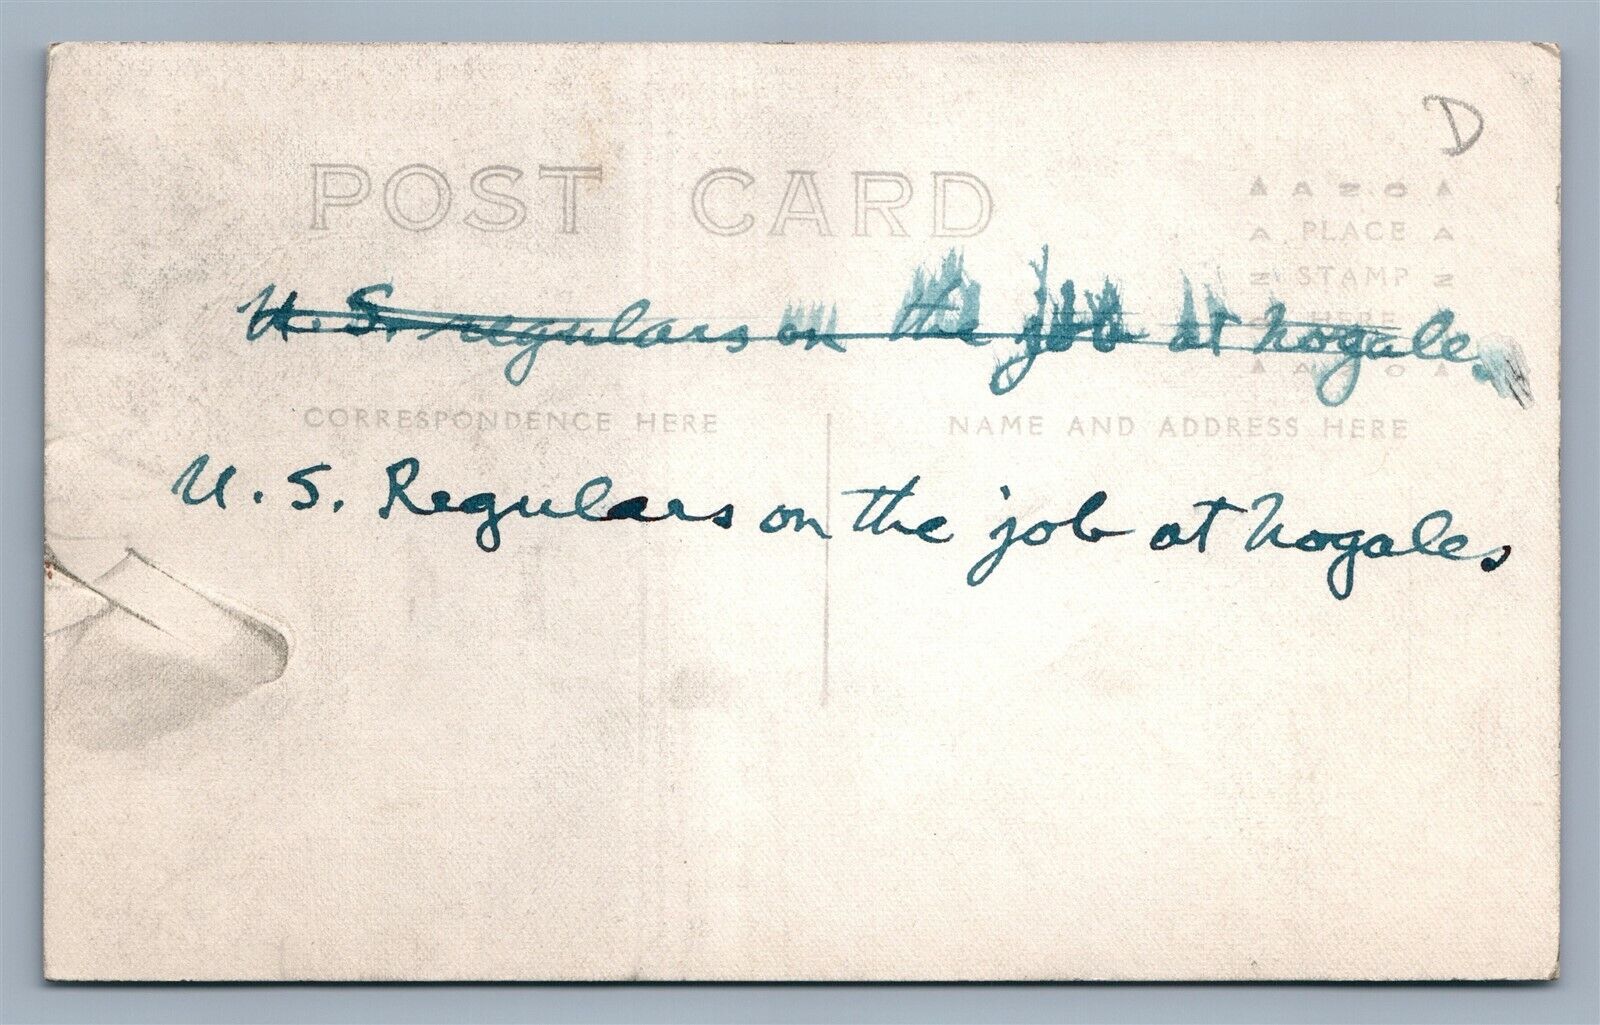 D
POST CARD
AZO
PLACE
STAMP
HERE
AZO
U. S. regulars on the job at nogales
CORRESPONDENCE HERE
NAME AND ADDRESS HERE
U. S. Regulars on the job at nogales